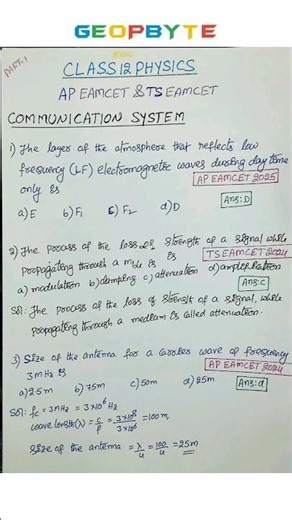 GEOPBYTE
PART-1
CLASS 12 PHYSICS
AP EAMCET & TS EAMCET
COMMUNICATION SYSTEM
1) The layer of the atmosphere that reflects low
frequency (LF) electromagnetic waves during day time
only is
AP EAMCET 2025
a) E b) F1 c) F2 d) D
Ans: D
2) The process of the loss of strength of a signal while
propagating through a medium is
TS EAMCET 2024
a) modulation b) damping c) attenuation d) amplification
Ans: c
Sol: The process of the loss of strength of a signal, while
propagating through a medium is called attenuation.
3) Size of the antenna for a carrier wave of frequency
3 MHz is
AP EAMCET 2024
a) 2.5m b) 75m c) 50m d) 25m
Ans: d
Sol: fc = 3MHz = 3×10⁶ Hz
wave length (λ) = c/f = 3×10⁸/3×10⁶ = 100m
Size of the antenna = λ/4 = 100/4 = 25m